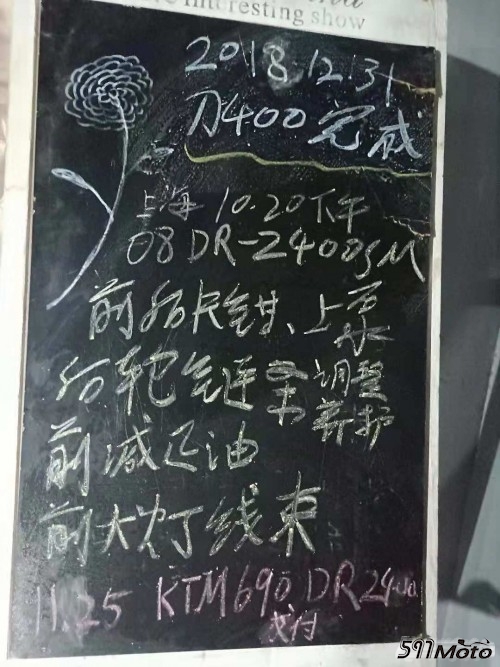 interesting show
2018.12.31
刀400完成
上海 10.20下午
08 DR-Z400SM
前后卡钳、上泵
后轮链条调整养护
前减正油
前大灯线束
11.25 KTM690 DRZ400
交付
511Moto